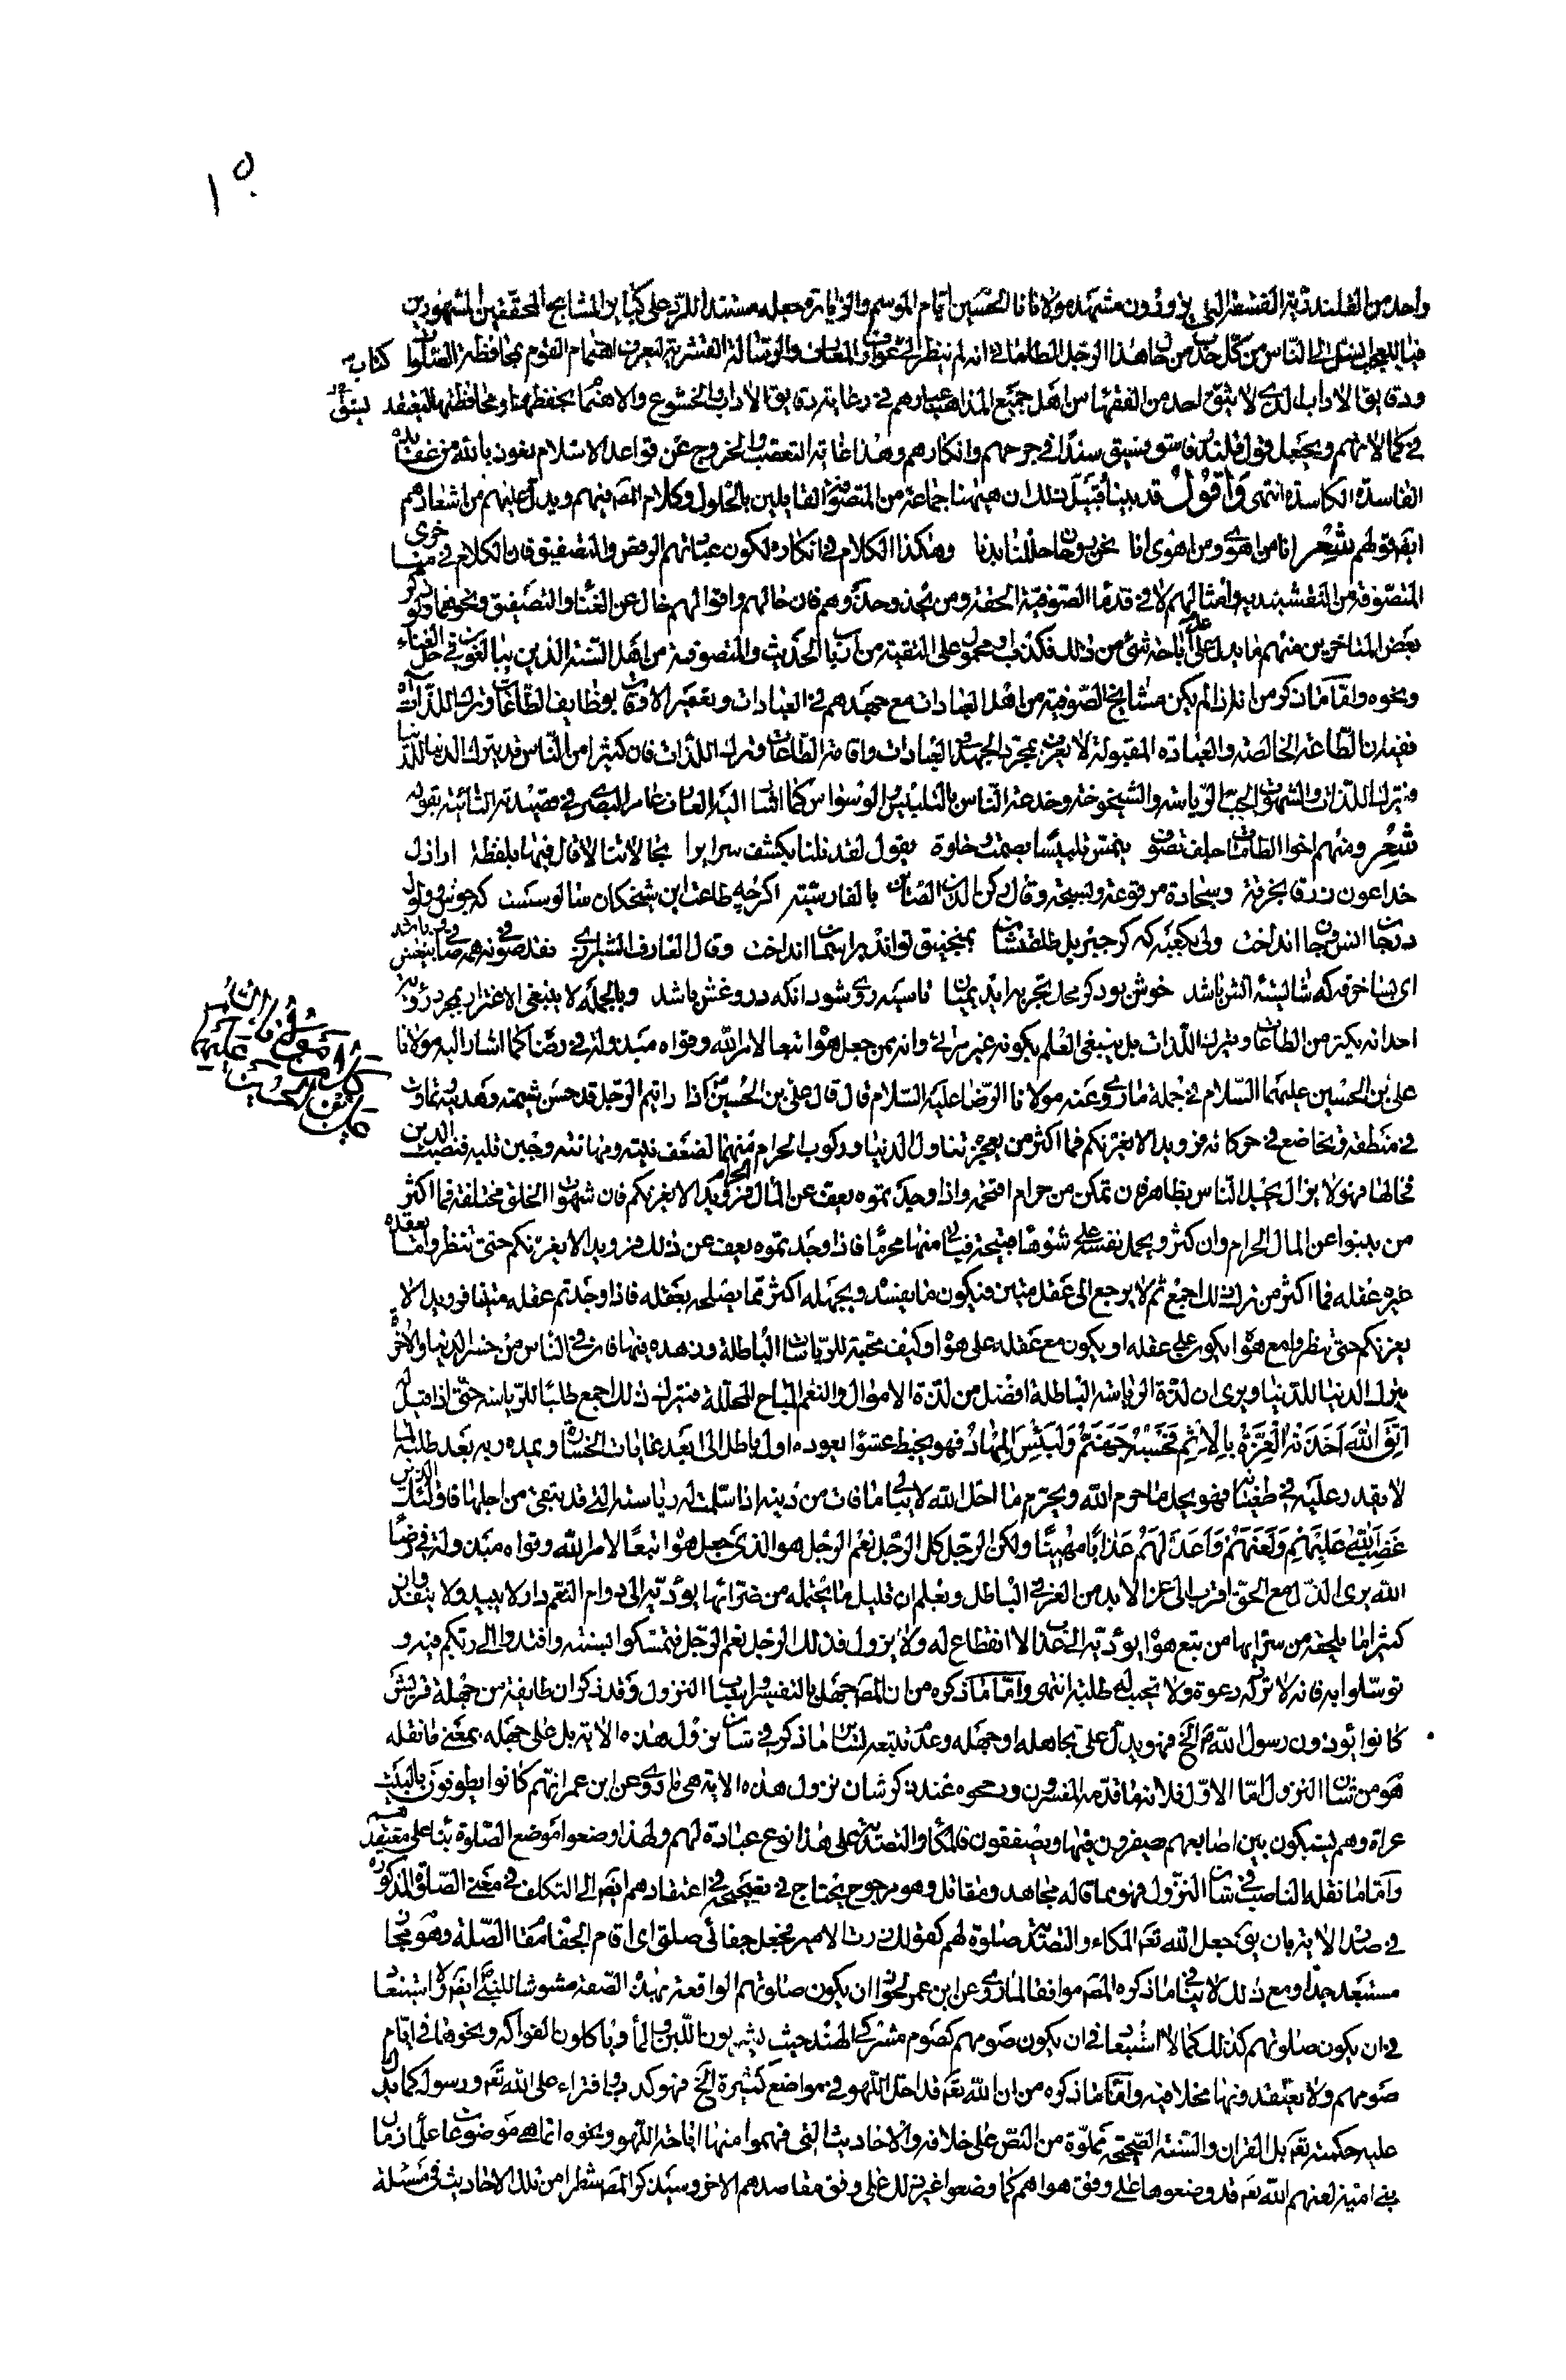 واحد من القلندرية الفسقة الذين يزورون مشهد مولانا الحسين ايام الموسم والزيارة وجعله مستند اللرد على كبار المشايخ المحققين المشهورين
فيا للعجب ينسل الى الناس من كل حدب من جاهد هذا الرجل الطامات انه لم ينظر الى عوارف المعارف والرسالة القشيرية ليعرف اهتمام القوم بمحافظة الصلوات كتابه
ودقايق الاداب الذي لا يشق احد من الفقهاء من اهل جميع المذاهب غبارهم في رعاية دقايق الاداب والخشوع والاهتمام بحفظها ومحافظتها ليعتقد
في كمالاتهم ويجعل قول قلندر فاسق سندا في جرحهم وانكارهم وهذا غاية التعصب والخروج عن قواعد الاسلام نعوذ بالله من عقايده
الفاسدة الكاسدة انتهى واقول قد بينا قبيل ذلك ان ههنا جماعة من المتصوفة القايلين بالحلول وكلام المصنف فيهم ويدل عليهم من اشعارهم
ايضا قولهم شعر انا من اهوى ومن اهوى انا نحن روحان حللنا بدنا وهكذا الكلام في انكاره لكون عباداتهم الرقص والتصفيق فان الكلام في
المتصوفة من النقشبندية وامثالهم لا في قدماء الصوفية الحقة ومن يحذو حذوهم فان حالهم واقوالهم خال عن الغناء والتصفيق ونحوهما
بعض المتاخرين منهم ما يدل على اباحة شئ من ذلك فكذب او محمول على التقية من ارباب الحديث والمتصوفة من اهل السنة الذين يبالغون في حل الغناء
ونحوه واما ما ذكره من انه اذا لم يكن مشايخ الصوفية من اهل العبادات مع جهدهم في العبادات وتعمير الاوقات بوظايف الطاعات وترك اللذات
ففيه ان الطاعة الخالصة والعبادة المقبولة لا يعرف بمجرد الجهد في العبادات واقامة الطاعات وترك اللذات فان كثيرا من الناس قد يترك الدنيا للدنيا
ويترك اللذات والشهوات لحب الرياسة والشيخوخة وخدعة الناس بالتلبيس والوسواس كما اشار اليه العارف عامر البصري في قصيدته التائية بقوله
شعر ومنهم اخو الطامات حلف تصوف يغش تلبيسا بصمت وخلوة يقول لقد نلنا بكشف سرايرا بحالاتنا لا قال فيها بلفظة اراذل
خداعون زرقا بخرقة وسجادة مرقوعة وسبحة وقال ركن الدين الصاين بالفارسية اكرچه طاعت اين شيخكان سالوسست كه جوش و ولوله
در جان انس و جان انداخت ولى بكعبه كه كر جبرئيل طلعتشان بمنجنيق تواند بر آسمان انداخت وقال العارف الشيرازي نقد صوفى نه همه صافى بيغش باشد
اى بسا خرقه كه شايسته آتش باشد خوش بود كر محك تجربه ايد بميان تا سيه روى شود آنكه در و غش باشد وبالجملة لا ينبغي الاغترار بمجرد رؤية
احد انه يكثر من الطاعات ويترك اللذات بل ينبغي العلم بكونه غير مرائي وانه ممن جعل هواه تبعا لامر الله وقواه مبذولة في رضاء كما اشار اليه مولانا
علي بن الحسين عليهما السلام في جملة ما روى عنه مولانا الرضا عليه السلام قال قال علي بن الحسين اذا رايتم الرجل قد حسن شيمته وهديه تماوت
في منطقه وتخاضع في حركاته فرويدا لا يغرنكم فما اكثر من يعجز تناول الدنيا وركوب الحرام منهما لضعف نيته ومهانته وجبن قلبه فنصب الدين
فخا لها فهو لا يزال يختل الناس بظاهره فان تمكن من حرام اقتحمه واذا وجدتموه يعف عن المال الحرام فرويدا لا يغرنكم فان شهوات الخلق مختلفة فما اكثر
من ينبوا عن المال الحرام وان كثر ويحمل نفسه على شوهاء قبيحة فياتي منها محرما فاذا وجدتموه يعف عن ذلك فرويدا لا يغرنكم حتى تنظروا ما يعقده
عقله فما اكثر من ترك ذلك اجمع ثم لا يرجع الى عقل متين فيكون ما يفسده بجهله اكثر مما يصلحه بعقله فاذا وجدتم عقله متينا فرويدا لا
يغرنكم حتى تنظروا مع هواه يكون على عقله او يكون مع عقله على هواه وكيف محبته للرياسات الباطلة وزهده فيها فان في الناس من خسر الدنيا والاخرة
يترك الدنيا للدنيا ويرى ان لذة الرياسة الباطلة افضل من لذة الاموال والنعم المباح المحللة فيترك ذلك اجمع طلبا للرياسة حتى اذا قيل له
اتق الله اخذته العزة بالاثم فحسبه جهنم ولبئس المهاد فهو يخبط عشوا يقوده اول باطل الى ابعد غايات الخسارة ويمده ربه بعد طلبه لما
لا يقدر عليه في طغيانه فهو يحل ما حرم الله ويحرم ما احل الله لا يبالي ما فات من دينه اذا سلمت له رياسته التي قد يتقى من اجلها فاولئك الذين
غضب الله عليهم ولعنهم واعد لهم عذابا مهينا ولكن الرجل كل الرجل نعم الرجل هو الذي جعل هواه تبعا لامر الله وقواه مبذولة في رضا
الله يرى الذل مع الحق اقرب الى عز الابد من العز في الباطل ويعلم ان قليل ما يحتمله من ضرائها يؤديه الى دوام النعم دار لا يبيد ولا ينفد وان
كثير ما يلحقه من سرائها من يتبع هواه يؤديه الى عذاب لا انقطاع له ولا يزول فذلك الرجل نعم الرجل فتمسكوا بسنته واقتدوا الى ربكم فيه و
توسلوا به فانه لا ترد له دعوة ولا تخيب له طلبة انتهى واما ما ذكره من ان المصنف جهل بالتفسير واسباب النزول وقد ذكر ان طايفة من جهلة قريش
كانوا يؤذون رسول الله ص الخ فهو يدل على تجاهله او جهله وعدم تتبعه لساير ما ذكر في شان نزول هذه الاية بل على جهله بمعنى ما نقله
هو من شان النزول اما الاول فلانه ما قدمه المفسرون ورجحوه عند ذكر شان نزول هذه الاية هي ما روى عن ابن عمر انهم كانوا يطوفون بالبيت
عراة وهم يشبكون بين اصابعهم صيفرون فيها ويصفقون فالمكاء والتصدية على هذا نوع عبادة لهم ولهذا وضعوا موضع الصلوة بناء على معتقدهم
واما ما نقله الناصب في شان النزول فهو مما قاله مجاهد ومقاتل وهو مرجوح يحتاج في تصحيحه في اعتقادهم ايضا الى التكلف في معنى الصلوة المذكورة
في صدر الاية بان يق جعل الله تعالى المكاء والتصدية صلوة لهم كقولك زرت الامير فجعل جفائي صلتي اي اقام الجفا مقام الصلة وهو مجاز
مستبعد جدا ومع ذلك لا ينافي ما ذكره المصنف موافقا لما روى عن ابن عمر لجواز ان يكون صلوتهم الواقعة بهذه الصفة مشوشا للنبي ايضا ولا استبعاد
في ان يكون صلوتهم كذلك كما لا استبعاد في ان يكون صومهم كصوم مشركي الهند حيث يشربون اللبن والماء وياكلون الفواكه ونحوها في ايام
صومهم ولا يعتقدونها مخلا فيه واما ما ذكره من ان الله تعالى قد احل اللهو في مواضع كثيرة الخ فهو كذب وافتراء على الله تعالى ورسوله كما يدل
عليه حكمته تعالى بل القران والسنة الصحيحة مملوة من النص على خلافه والاحاديث التي فهموا منها اباحة اللهو ونحوه انما هي موضوعات علماء زمان
بني امية لعنهم الله تعالى قد وضعوها على وفق هواهم كما وضعوا غير ذلك على وفق مقاصدهم الاخر وسيذكر المصنف شطرا من تلك الاحاديث في مسئلة